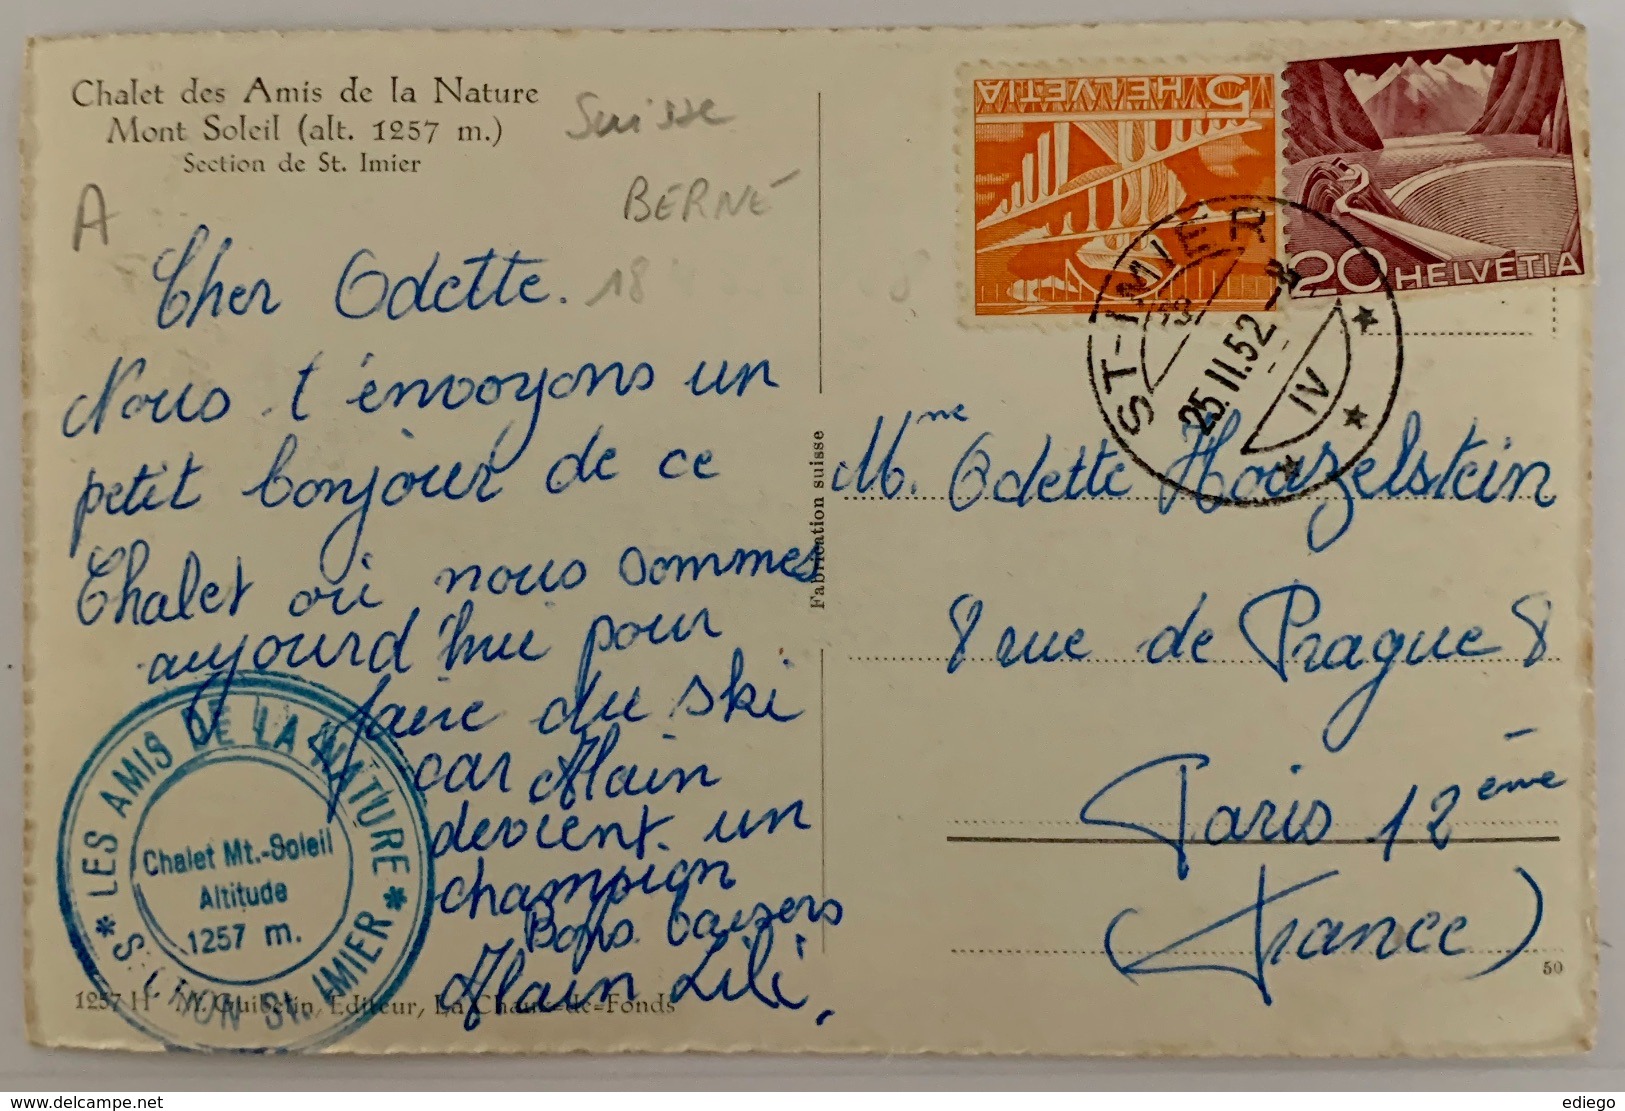 Chalet des Amis de la Nature
Mont Soleil (alt. 1257 m.)
Section de St. Imier
Suisse
BERNE
A
18
Cher Odette.
Nous t'envoyons un
petit bonjour de ce
Chalet où nous sommes
aujourd'hui pour
faire du ski
car Alain
devient un
champion
Bons baisers
Alain Lili.
LES AMIS DE LA NATURE
Chalet Mt.-Soleil
Altitude
1257 m.
ST. IMIER
1257 H
Editeur, La Chaux-de-Fonds
Fabrication suisse
5 HELVETIA
20 HELVETIA
ST-IMIER
25.II.52
IV
Mme. Odette Houzelstein
8 rue de Prague 8
Paris 12ème
(France)
50
delcampe.net
ediego